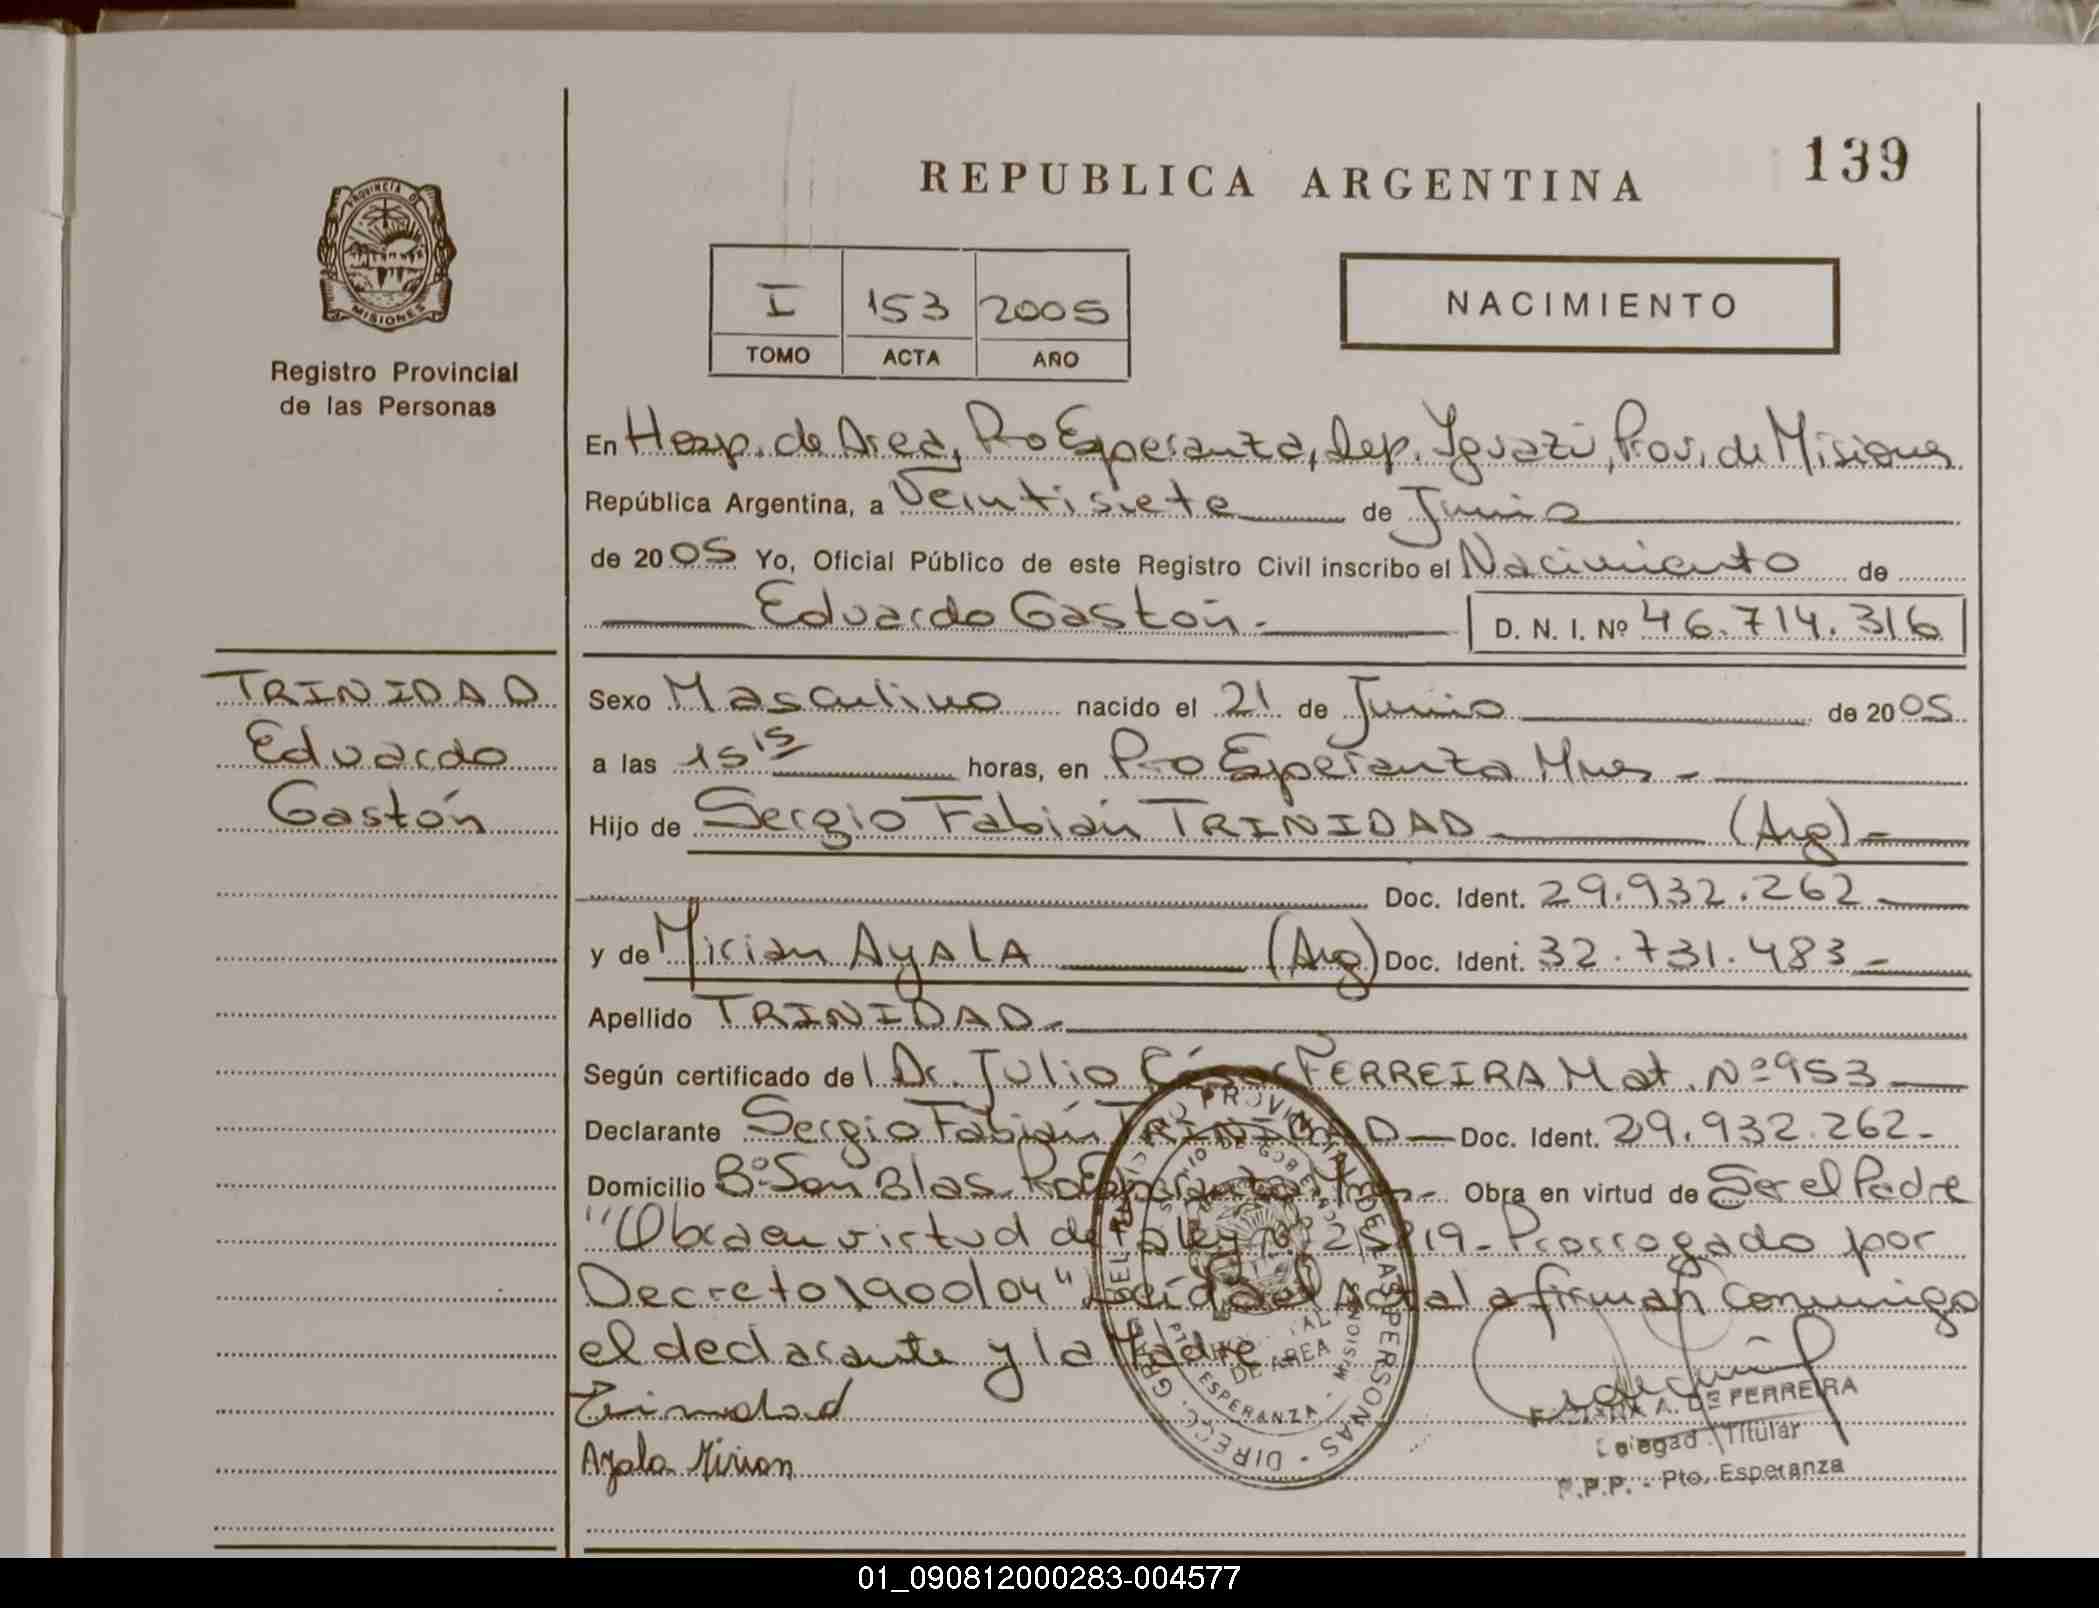 REPUBLICA ARGENTINA
139
PROVINCIA DE
MISIONES
Registro Provincial
de las Personas
I 153 2005
TOMO ACTA AÑO
NACIMIENTO
En Hosp. de Area, Pto Esperanza, Dep. Iguazú, Prov. de Misiones
República Argentina, a Veintisiete de Junio
de 2005 Yo, Oficial Público de este Registro Civil inscribo el Nacimiento de
Eduardo Gastón.- D. N. I. Nº 46.714.316
TRINIDAD
Eduardo
Gastón
Sexo Masculino nacido el 21 de Junio de 2005
a las 15 15 horas, en Pto Esperanza Mnes -
Hijo de Sergio Fabián TRINIDAD (Arg)-
Doc. Ident. 29.932.262
y de Mirian AyALA (Arg) Doc. Ident. 32.731.483-
Apellido TRINIDAD-
Según certificado del Dr. Julio César FERREIRA Mat. Nº 953
Declarante Sergio Fabián TRINIDAD- Doc. Ident. 29.932.262-
Domicilio Bº San Blas Pto Esperanza Mnes- Obra en virtud de Ser el Padre
"Obra en virtud de la ley Nº 25819-Prorrogado por
Decreto 1900/04" Leída el Acta la firman conmigo
el declarante y la Madre-
Trinidad
Ayala Mirian
A. DE FERREIRA
Titular
Pto. Esperanza
DIRECC. GRAL. DEL REGISTRO PROVINCIAL DE LAS PERSONAS
HOSPITAL
DE AREA
PTO ESPERANZA - MISIONES
01_090812000283-004577